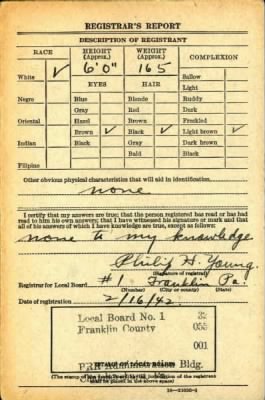 REGISTRAR'S REPORT
DESCRIPTION OF REGISTRANT
RACE HEIGHT (Approx.) WEIGHT (Approx.) COMPLEXION
White ✓ 6'0" 165 Sallow
EYES HAIR Light
Negro Blue Blonde Ruddy
Gray Red Dark
Oriental Hazel Brown Freckled
Brown ✓ Black ✓ Light brown ✓
Indian Black Gray Dark brown
Bald Black
Filipino
Other obvious physical characteristics that will aid in identification.
none
I certify that my answers are true; that the person registered has read or has had
read to him his own answers; that I have witnessed his signature or mark and that
all of his answers of which I have knowledge are true, except as follows:
none to my knowledge
Philip H. Young.
(Signature of registrar)
Registrar for Local Board #1 Franklin Pa.
(Number) (City or county) (State)
Date of registration 2/16/42.
Local Board No. 1 32
Franklin County 055
001
Bldg.
(The stamp of the Local Board
shall be placed in the above space)